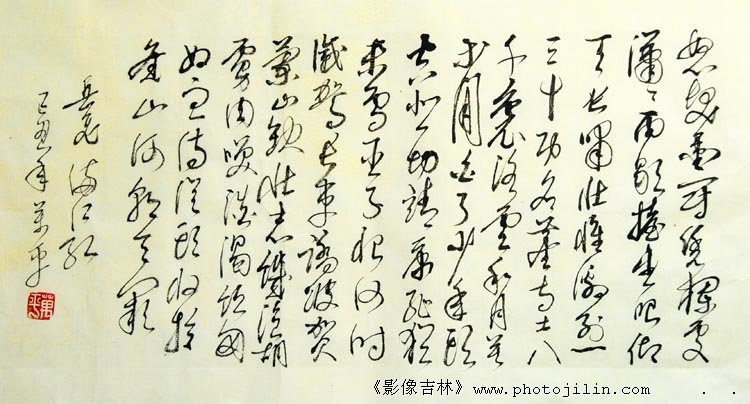 怒发冲冠凭栏处
潇潇雨歇抬望眼仰
天长啸壮怀激烈
三十功名尘与土八
千里路云和月莫
等闲白了少年头
空悲切靖康耻犹
未雪臣子恨何时
灭驾长车踏破贺
兰山缺壮志饥餐胡
虏肉笑谈渴饮匈
奴血待从头收拾
旧山河朝天阙
岳飞满江红
己丑年万平
萬平
《影像吉林》www.photojilin.com